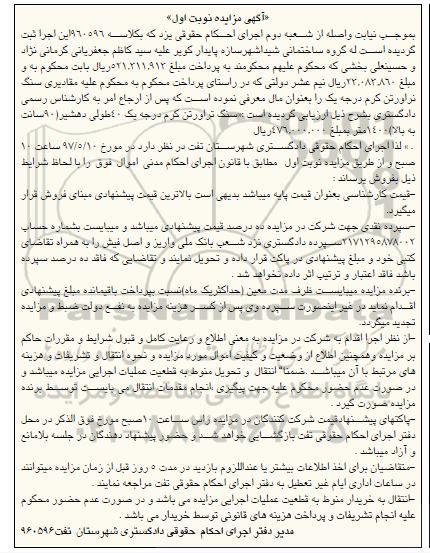 «آگهی مزایده نوبت اول»
بموجب نیابت واصله از شعبه دوم اجرای احکام حقوقی یزد که بکلاسه ۹۶۰۵۹۶ این اجرا ثبت
گردیده است له گروه ساختمانی شیداشهرسازه پایدار کویر علیه سید کاظم جعفریانی کرمانی نژاد
و حسینعلی بخشی که محکوم علیهم محکومند به پرداخت مبلغ ۵۲۱,۳۱۱,۹۱۳ریال بابت محکوم به و
مبلغ ۲۳,۰۸۳,۸۶۰ریال نیم عشر دولتی که در راستای پرداخت محکوم به محکوم علیه مقادیری سنگ
تراورتن کرم درجه یک را بعنوان مال معرفی نموده است که پس از ارجاع امر به کارشناس رسمی
دادگستری بشرح ذیل ارزیابی گردیده است :«سنگ تراورتن کرم درجه یک ۴۰طولی دهشیر(۹۰سانت
به بالا)۱۴۰۰متر بمبلغ ۴۷۶,۰۰۰,۰۰۰ریال
.» لذا اجرای احکام حقوقی دادگستری شهرستان تفت در نظر دارد در مورخ ۹۷/۵/۱۰ ساعت ۱۰
صبح و از طریق مزایده نوبت اول مطابق با قانون اجرای احکام مدنی اموال فوق را با لحاظ شرایط
ذیل بفروش برساند :
-قیمت کارشناسی بعنوان قیمت پایه میباشد بدیهی است بالاترین قیمت پیشنهادی مبنای فروش قرار
میگیرد.
-سپرده نقدی جهت شرکت در مزایده ده درصد قیمت پیشنهادی میباشد و میبایست بشماره حساب
۲۱۷۱۲۹۵۸۷۸۰۰۲سپرده دادگستری نزد شعب بانک ملی واریز و اصل فیش را به همراه تقاضای
کتبی خود و مبلغ پیشنهادی در پاکت قرار داده و تحویل نمایند و تقاضایی که فاقد ده درصد سپرده
باشد فاقد اعتبار و ترتیب اثر داده نخواهد شد .
-برنده مزایده میبایست ظرف مدت معین (حداکثریک ماه)نسبت بپرداخت باقیمانده مبلغ پیشنهادی
اقدام نماید در غیر اینصورت سپرده وی پس از کسر هزینه مزایده به نفع دولت ضبط و مزایده
تجدید میگردد.
-از نظر اجرا اقدام به شرکت در مزایده به معنی اطلاع و رعایت کامل و قبول شرایط و مقررات حاکم
بر مزایده وهمچنین اطلاع از وضعیت و کیفیت اموال مورد مزایده و نحوه انتقال و تشریفات و هزینه
های مرتبط با آن میباشد .ضمنا" انتقال و تحویل منوط به قطعیت عملیات اجرایی مزایده میباشد و
در صورت عدم حضور محکوم علیه جهت پیگیری ،انجام مقدمات انتقال می بایست توسط برنده
مزایده صورت گیرد .
-پاکتهای پیشنهادقیمت شرکت کنندگان در مزایده راس ساعت ۱۰صبح مورخ فوق الذکر در محل
دفتر اجرای احکام حقوقی تفت بازگشایی خواهد شد و حضور پیشنهاد دهندگان در جلسه بلامانع
و آزاد میباشد .
-متقاضیان برای اخذ اطلاعات بیشتر یا عنداللزوم بازدید در مدت ۵ روز قبل از زمان مزایده میتوانند
در ساعات اداری ایام غیر تعطیل به دفتر اجرای احکام حقوقی تفت مراجعه نمایند .
-انتقال به خریدار منوط به قطعیت عملیات اجرایی مزایده می باشد و در صورت عدم حضور محکوم
علیه انجام تشریفات و پرداخت هزینه های قانونی توسط خریدار می باشد .
مدیر دفتر اجرای احکام حقوقی دادگستری شهرستان تفت۹۶۰۵۹۶